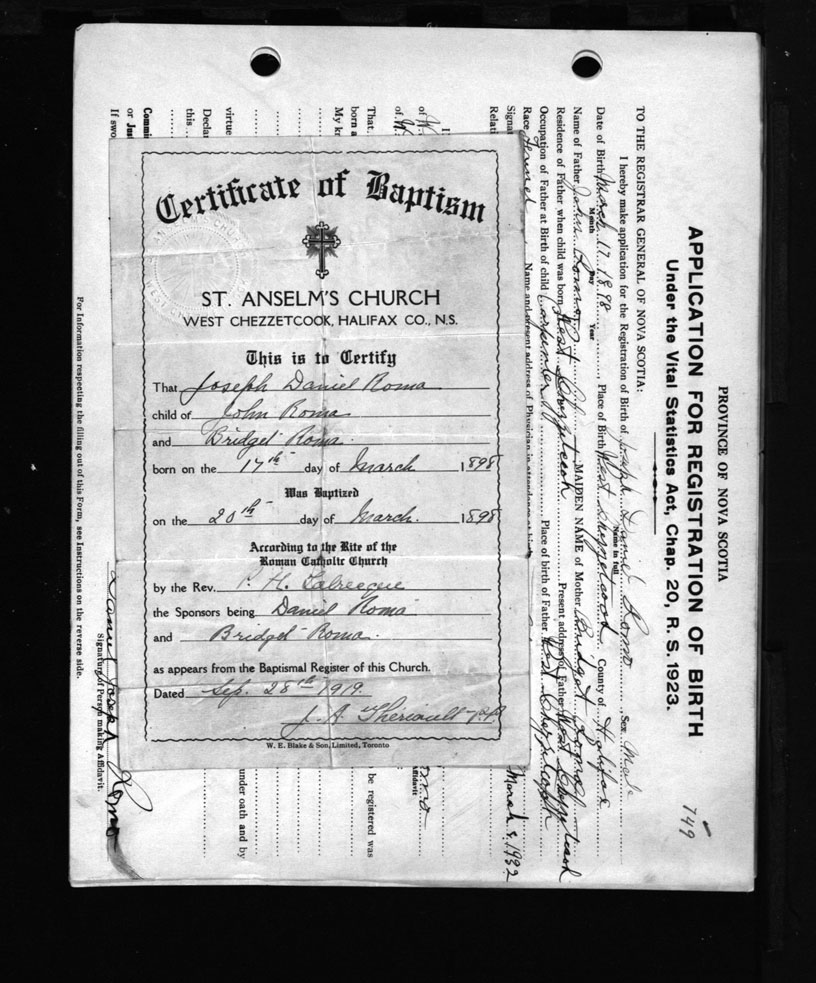 Certificate of Baptism
ST. ANSELM'S CHURCH
WEST CHEZZETCOOK, HALIFAX CO., N.S.
This is to Certify
That Joseph Daniel Roma
child of John Roma
and Bridget Roma
born on the 17th day of March 1898
Was Baptized
on the 20th day of March. 1898
According to the Rite of the
Roman Catholic Church
by the Rev. P. H. Labrecque
the Sponsors being Daniel Roma
and Bridget Roma.
as appears from the Baptismal Register of this Church.
Dated Sep. 28th 1919.
J. A. Theriault P.P.
W. E. Blake & Son, Limited, Toronto
749
PROVINCE OF NOVA SCOTIA
APPLICATION FOR REGISTRATION OF BIRTH
Under the Vital Statistics Act, Chap. 20, R. S. 1923.
TO THE REGISTRAR GENERAL OF NOVA SCOTIA:
I hereby make application for the Registration of Birth of Joseph Daniel Romo Sex Male
Name in full
Date of Birth March 17 1898 Place of Birth West Chezzetcook County of Halifax
Month Day Year
Name of Father John MAIDEN NAME of Mother Bridget
Residence of Father when child was born West Chezzetcook Present address of Father West Chezzetcook
Occupation of Father at Birth of child Carpenter Place of birth of Father West Chezzetcook
Race French Name and present address of Physician in attendance at birth
Signa
March 9, 1932
Relati
I
of W
of W
Affidavit
That
born a
be registered was
My k
virtue
under oath and by
Decla
this
Commi
or Jus
If swo
Daniel Joseph Romo
Signature of Person making Affidavit.
For Information respecting the filling out of this Form, see Instructions on the reverse side.